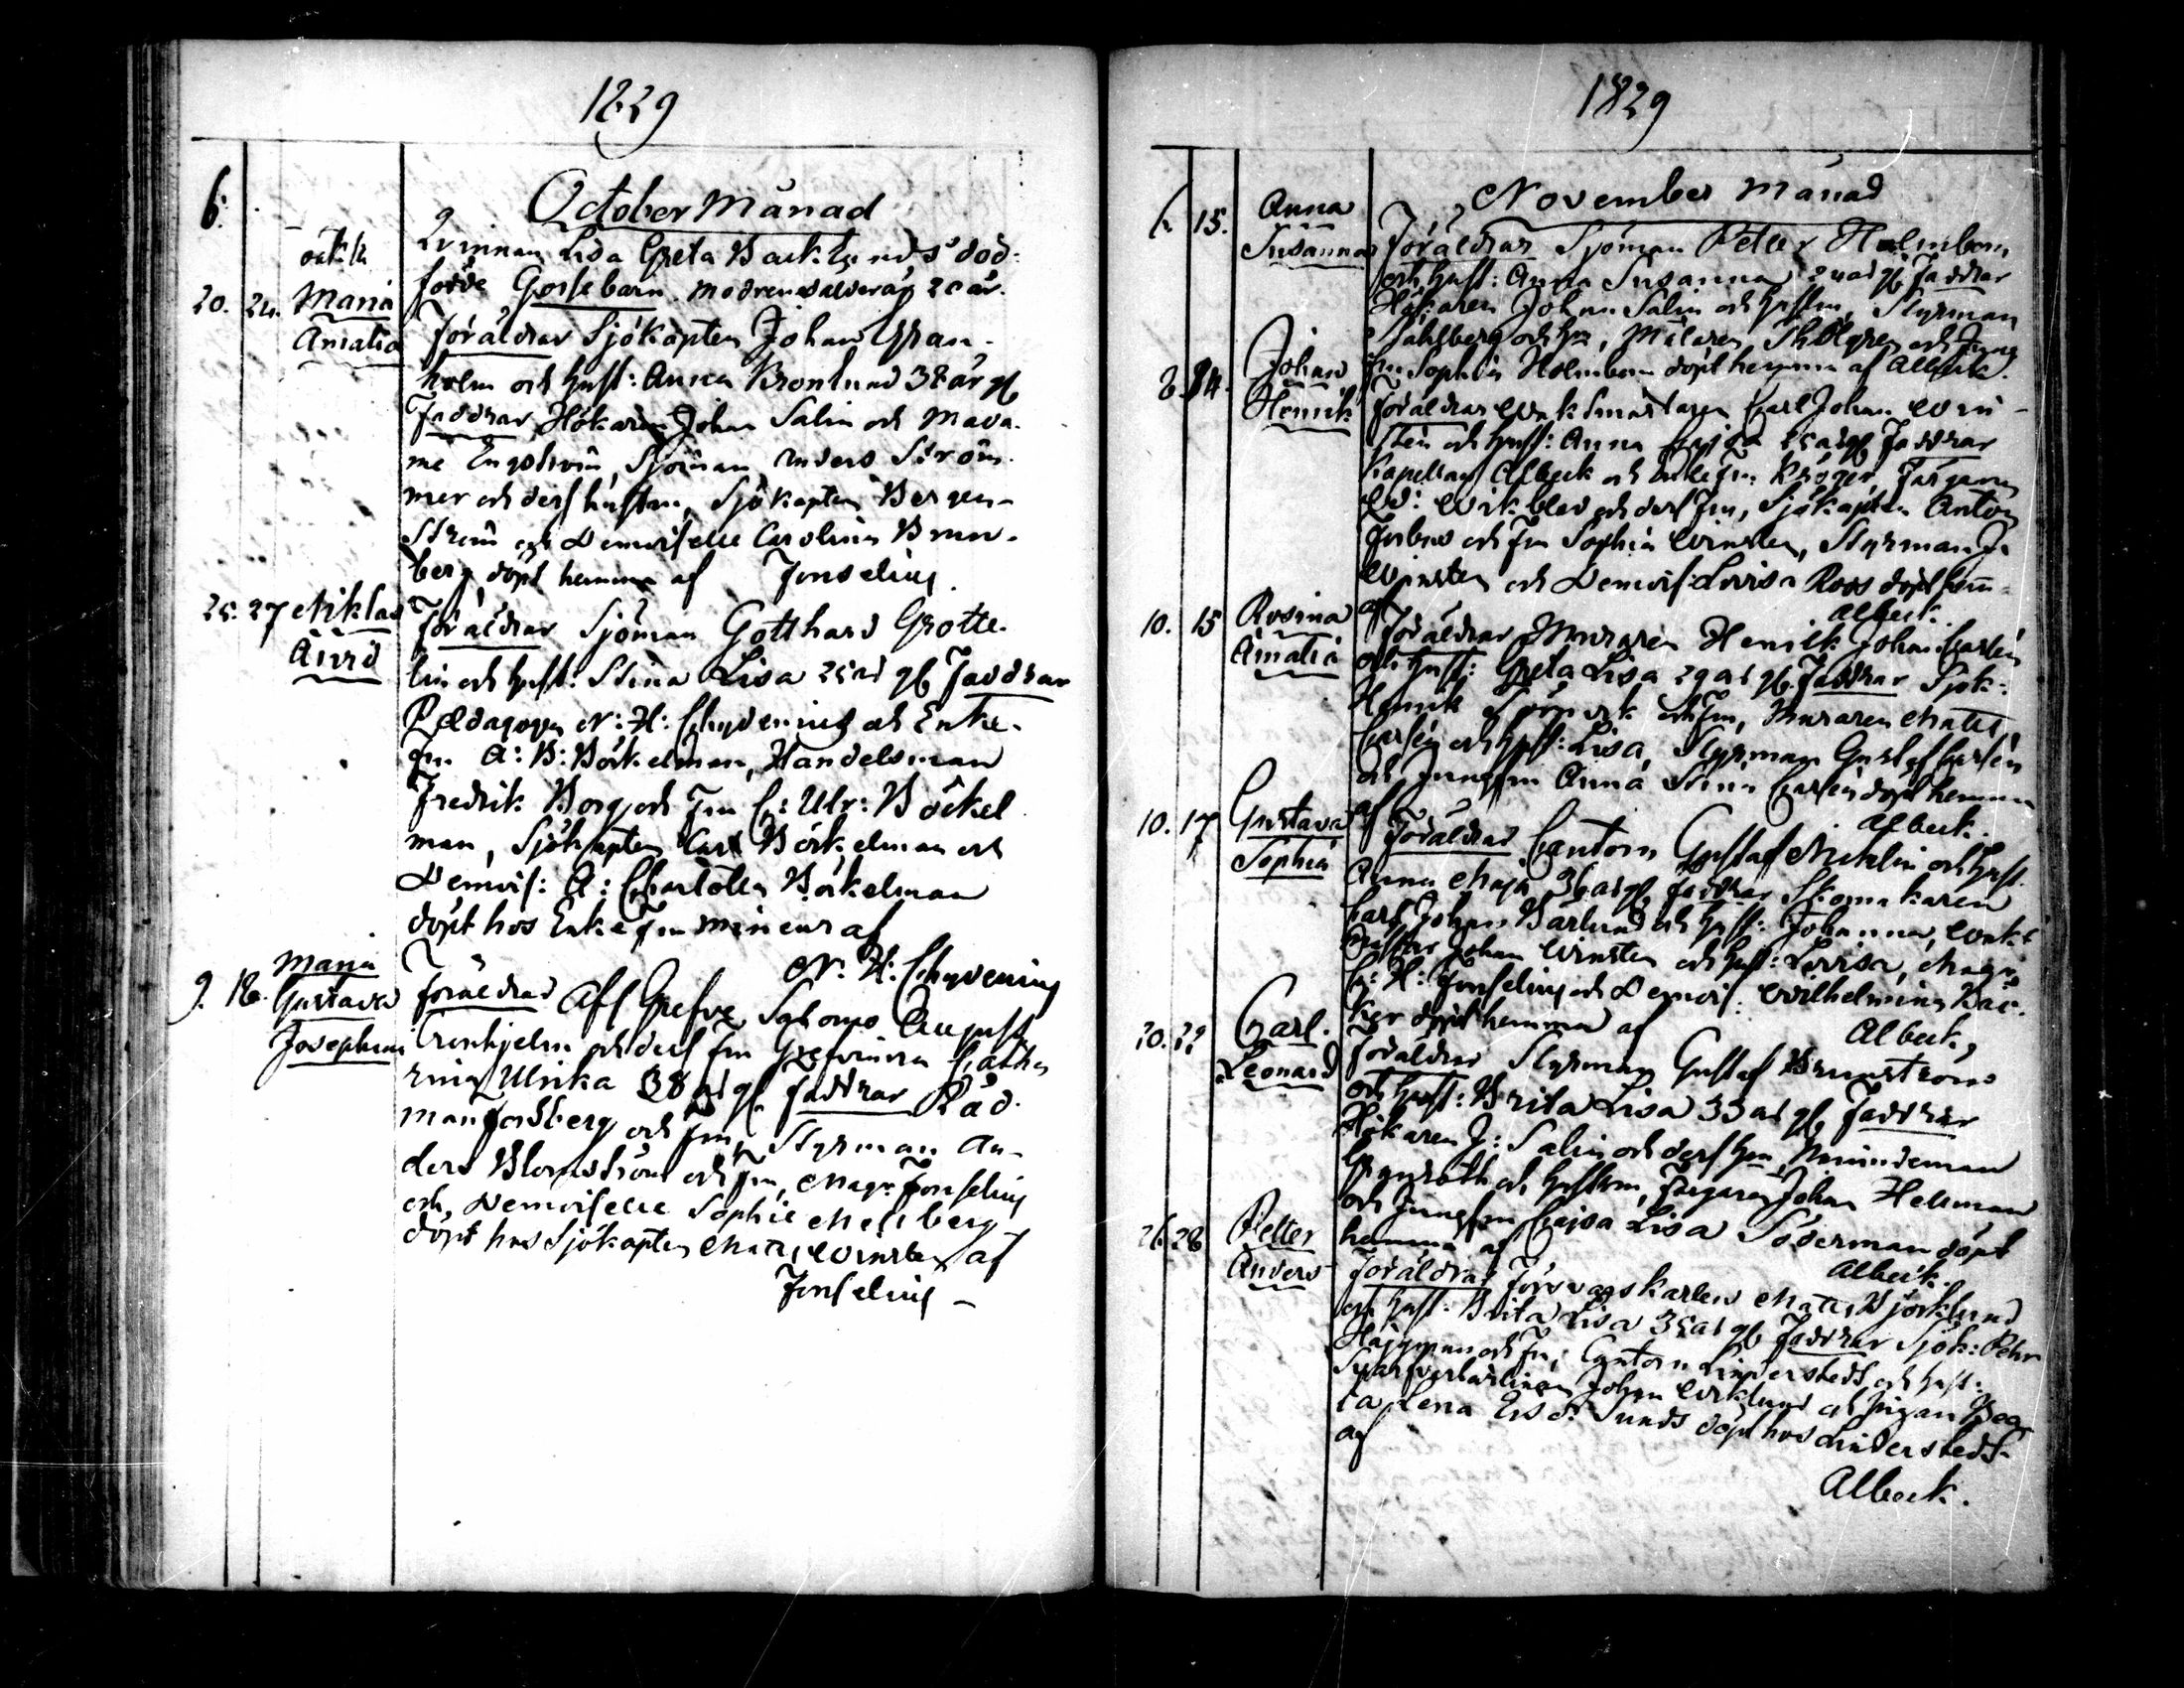 1829
October Månad
6.
oäkta
Qvinnan Lisa Greta Backlunds död-
födde Gossebarn. modrens ålder är 20 år.
20. 24. Maria Amalia
Föräldrar Sjökapten Johan Gran-
holm och hust: Anna Bronlund 38 år gl
Faddrar, Hökaren Johan Salin och Mada-
me Engström, Sjöman Anders Ström-
mer och dess hustru, Sjökapten Bergen-
Ström och Demoiselle Carolina Brun-
berg, döpt hemma af Fonselius
25. 27 Niklas
Föräldrar Sjöman Gotthard Grotte-
lin och hust: Stina Lisa 25 år gl Faddrar
Pædagogen N: H: Chydenius och Enke-
fru A: B: Böckelman, Handelsman
Fredrik Borg och Fru C: Ulr: Böckel
man, Sjökapten Carl Böckelman och
Demois: A: Charlotta Böckelman
döpt hos Enke Fru Mineur af
N: H: Chydenius
9. 18. Maria Gustava Josephina
Föräldrar Afl Grefve Salomo August
Creuhjelm och dess fru Grefvinna Catha
rina Ulrika 38 år gl. Faddrar Råd-
man Forsberg och Fru, Styrman An-
ders Blomström och fru, Mag: Fonselius
och, Demoiselle Sophie Mellberg
döpt hos Sjökapten Matts Winsten af
Fonselius
1829
November månad
6. 15. Anna Susanna
Föräldrar Sjöman Petter Holmbom
och hust: Anna Susanna år gl Faddrar
Hökaren Johan Salin och hustru, Styrman
Dahlberg och fru, Målaren och Jung
fru Sophia Holmbom döpt hemma af Albeck.
8. 14. Johan Henrik
Föräldrar Johan Win-
sten och hust: Anna Cajsa 25 år gl Faddrar
Kapellan Albeck och Enkefru Kröger, Färgaren
Wikblad och dess Fru, Sjökapten Anton
och Fru Sophia Winsten, Styrman J.
Winsten och Demois: Lovisa Roos döpt hem-
af Albeck.
10. 15 Rosina Amalia
Föräldrar Muraren Henrik Johan Carlén
och hust: Greta Lisa 29 år gl. Faddrar Sjök:
Henrik och Fru, Muraren Matts
Carlén och hust: Lisa, Styrman Gustaf Carlén
och Jungfru Anna Stina Carlén döpt hemma
af Albeck.
10. 17 Gustava Sophia
Föräldrar Cantorn Gustaf och hust.
Anna Maja 36 år gl. Faddrar Skomakaren
Carl Johan Barlund och hust: Johanna,
Johan Winsten och hust: Lovisa, Mag:
C: H: Fonselius och Demois: Wilhelmina Bäc-
ker döpt hemma af Albeck,
20. 22 Carl. Leonard
Föräldrar Styrman Gustaf Brunström
och hust: Brita Lisa 33 år gl Faddrar
Hökaren J: Salin och dess fru, Minudeman
och hustrun, Färgaren Johan Hellman
och Jungfru Cajsa Lisa Söderman döpt
hemma af Albeck.
26 28 Petter Anders
Föräldrar Försvarskarlen Matts Björklund
och hust: Brita Lisa 35 år gl Faddrar Sjök: Pehr
Häggman och Fru, Cantorn Linderstedt och hust:
Johan Wiklund och Pigan
Lena Ersd: Sunds döpt hos Linderstedt
af
Albeck.